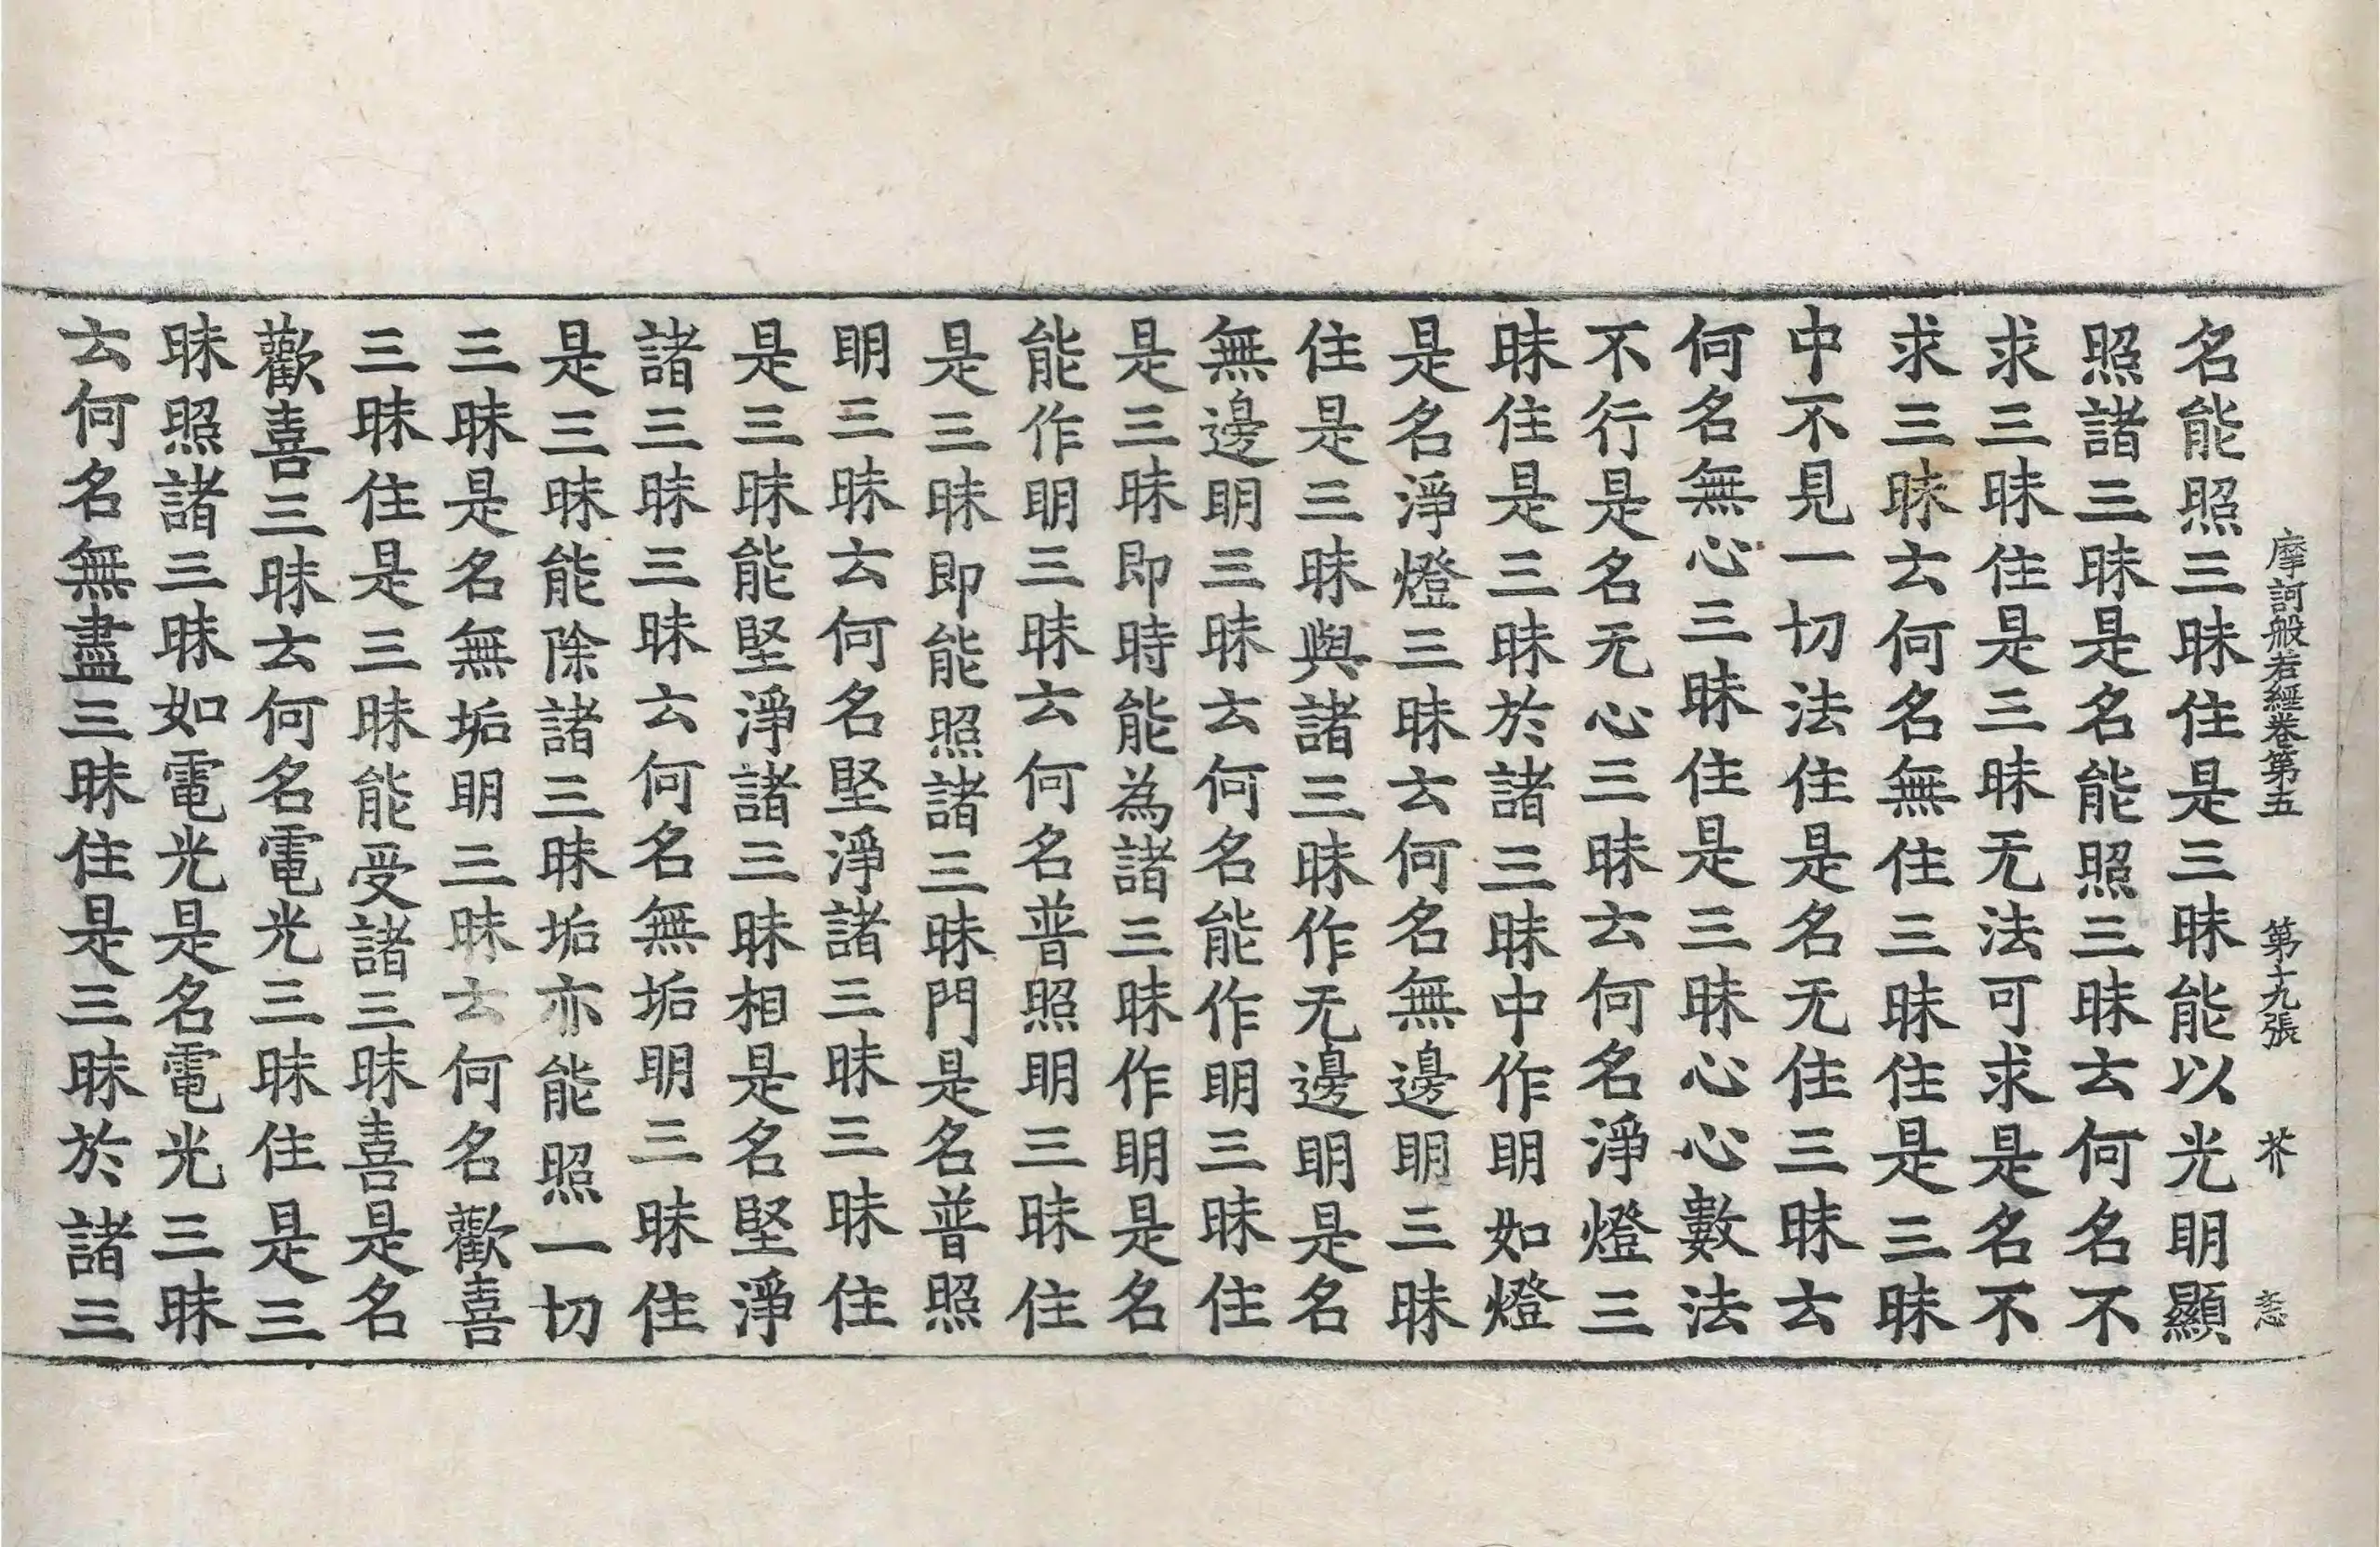 摩訶般若經卷第五 第十九張 芥
名能照三昧住是三昧能以光明顯
照諸三昧是名能照三昧云何名不
求三昧住是三昧无法可求是名不
求三昧云何名無住三昧住是三昧
中不見一切法住是名无住三昧云
何名無心三昧住是三昧心心數法
不行是名无心三昧云何名淨燈三
昧住是三昧於諸三昧中作明如燈
是名淨燈三昧云何名無邊明三昧
住是三昧與諸三昧作无邊明是名
無邊明三昧云何名能作明三昧住
是三昧即時能為諸三昧作明是名
能作明三昧云何名普照明三昧住
是三昧即能照諸三昧門是名普照
明三昧云何名堅淨諸三昧三昧住
是三昧能堅淨諸三昧相是名堅淨
諸三昧三昧云何名無垢明三昧住
是三昧能除諸三昧垢亦能照一切
三昧是名無垢明三昧云何名歡喜
三昧住是三昧能受諸三昧喜是名
歡喜三昧云何名電光三昧住是三
昧照諸三昧如電光是名電光三昧
云何名無盡三昧住是三昧於諸三